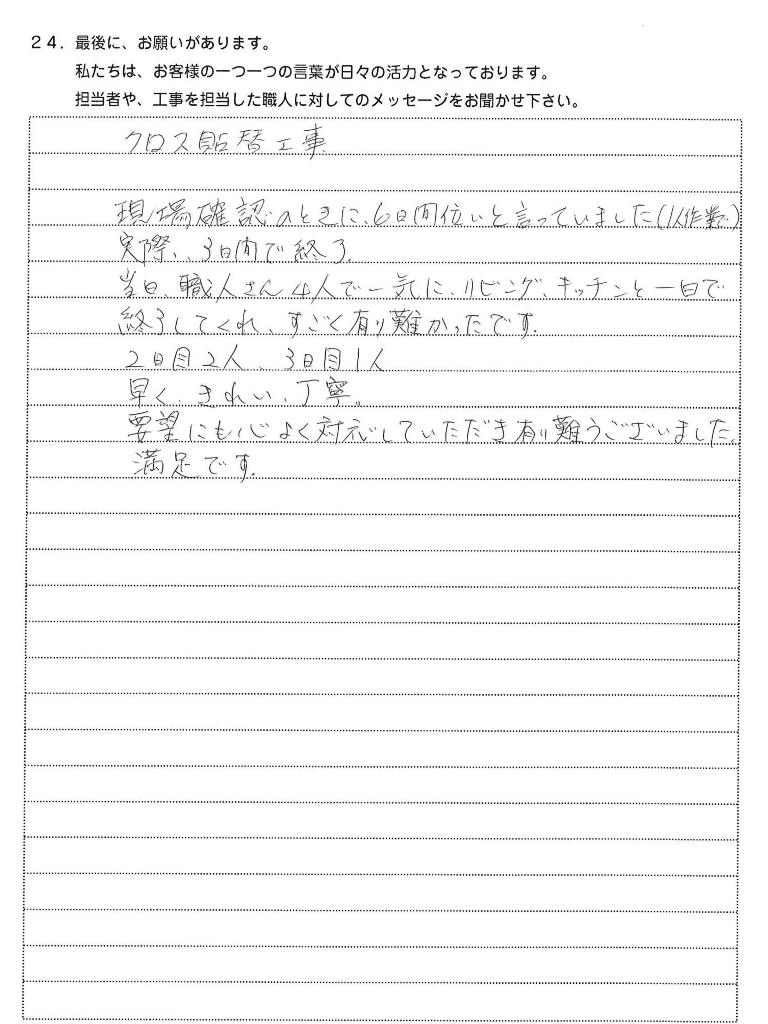 24. 最後に、お願いがあります。
私たちは、お客様の一つ一つの言葉が日々の活力となっております。
担当者や、工事を担当した職人に対してのメッセージをお聞かせ下さい。
クロス貼替工事
現場確認のときに、6日間位いと言っていました(1人作業で)
実際、3日間で終了.
当日、職人さん4人で一気に、リビング、キッチンと一日で
終了してくれ、すごく有り難かったです.
2日目2人、3日目1人
早く、きれい、丁寧。
要望にも心よく対応していただき有り難うございました。
満足です.